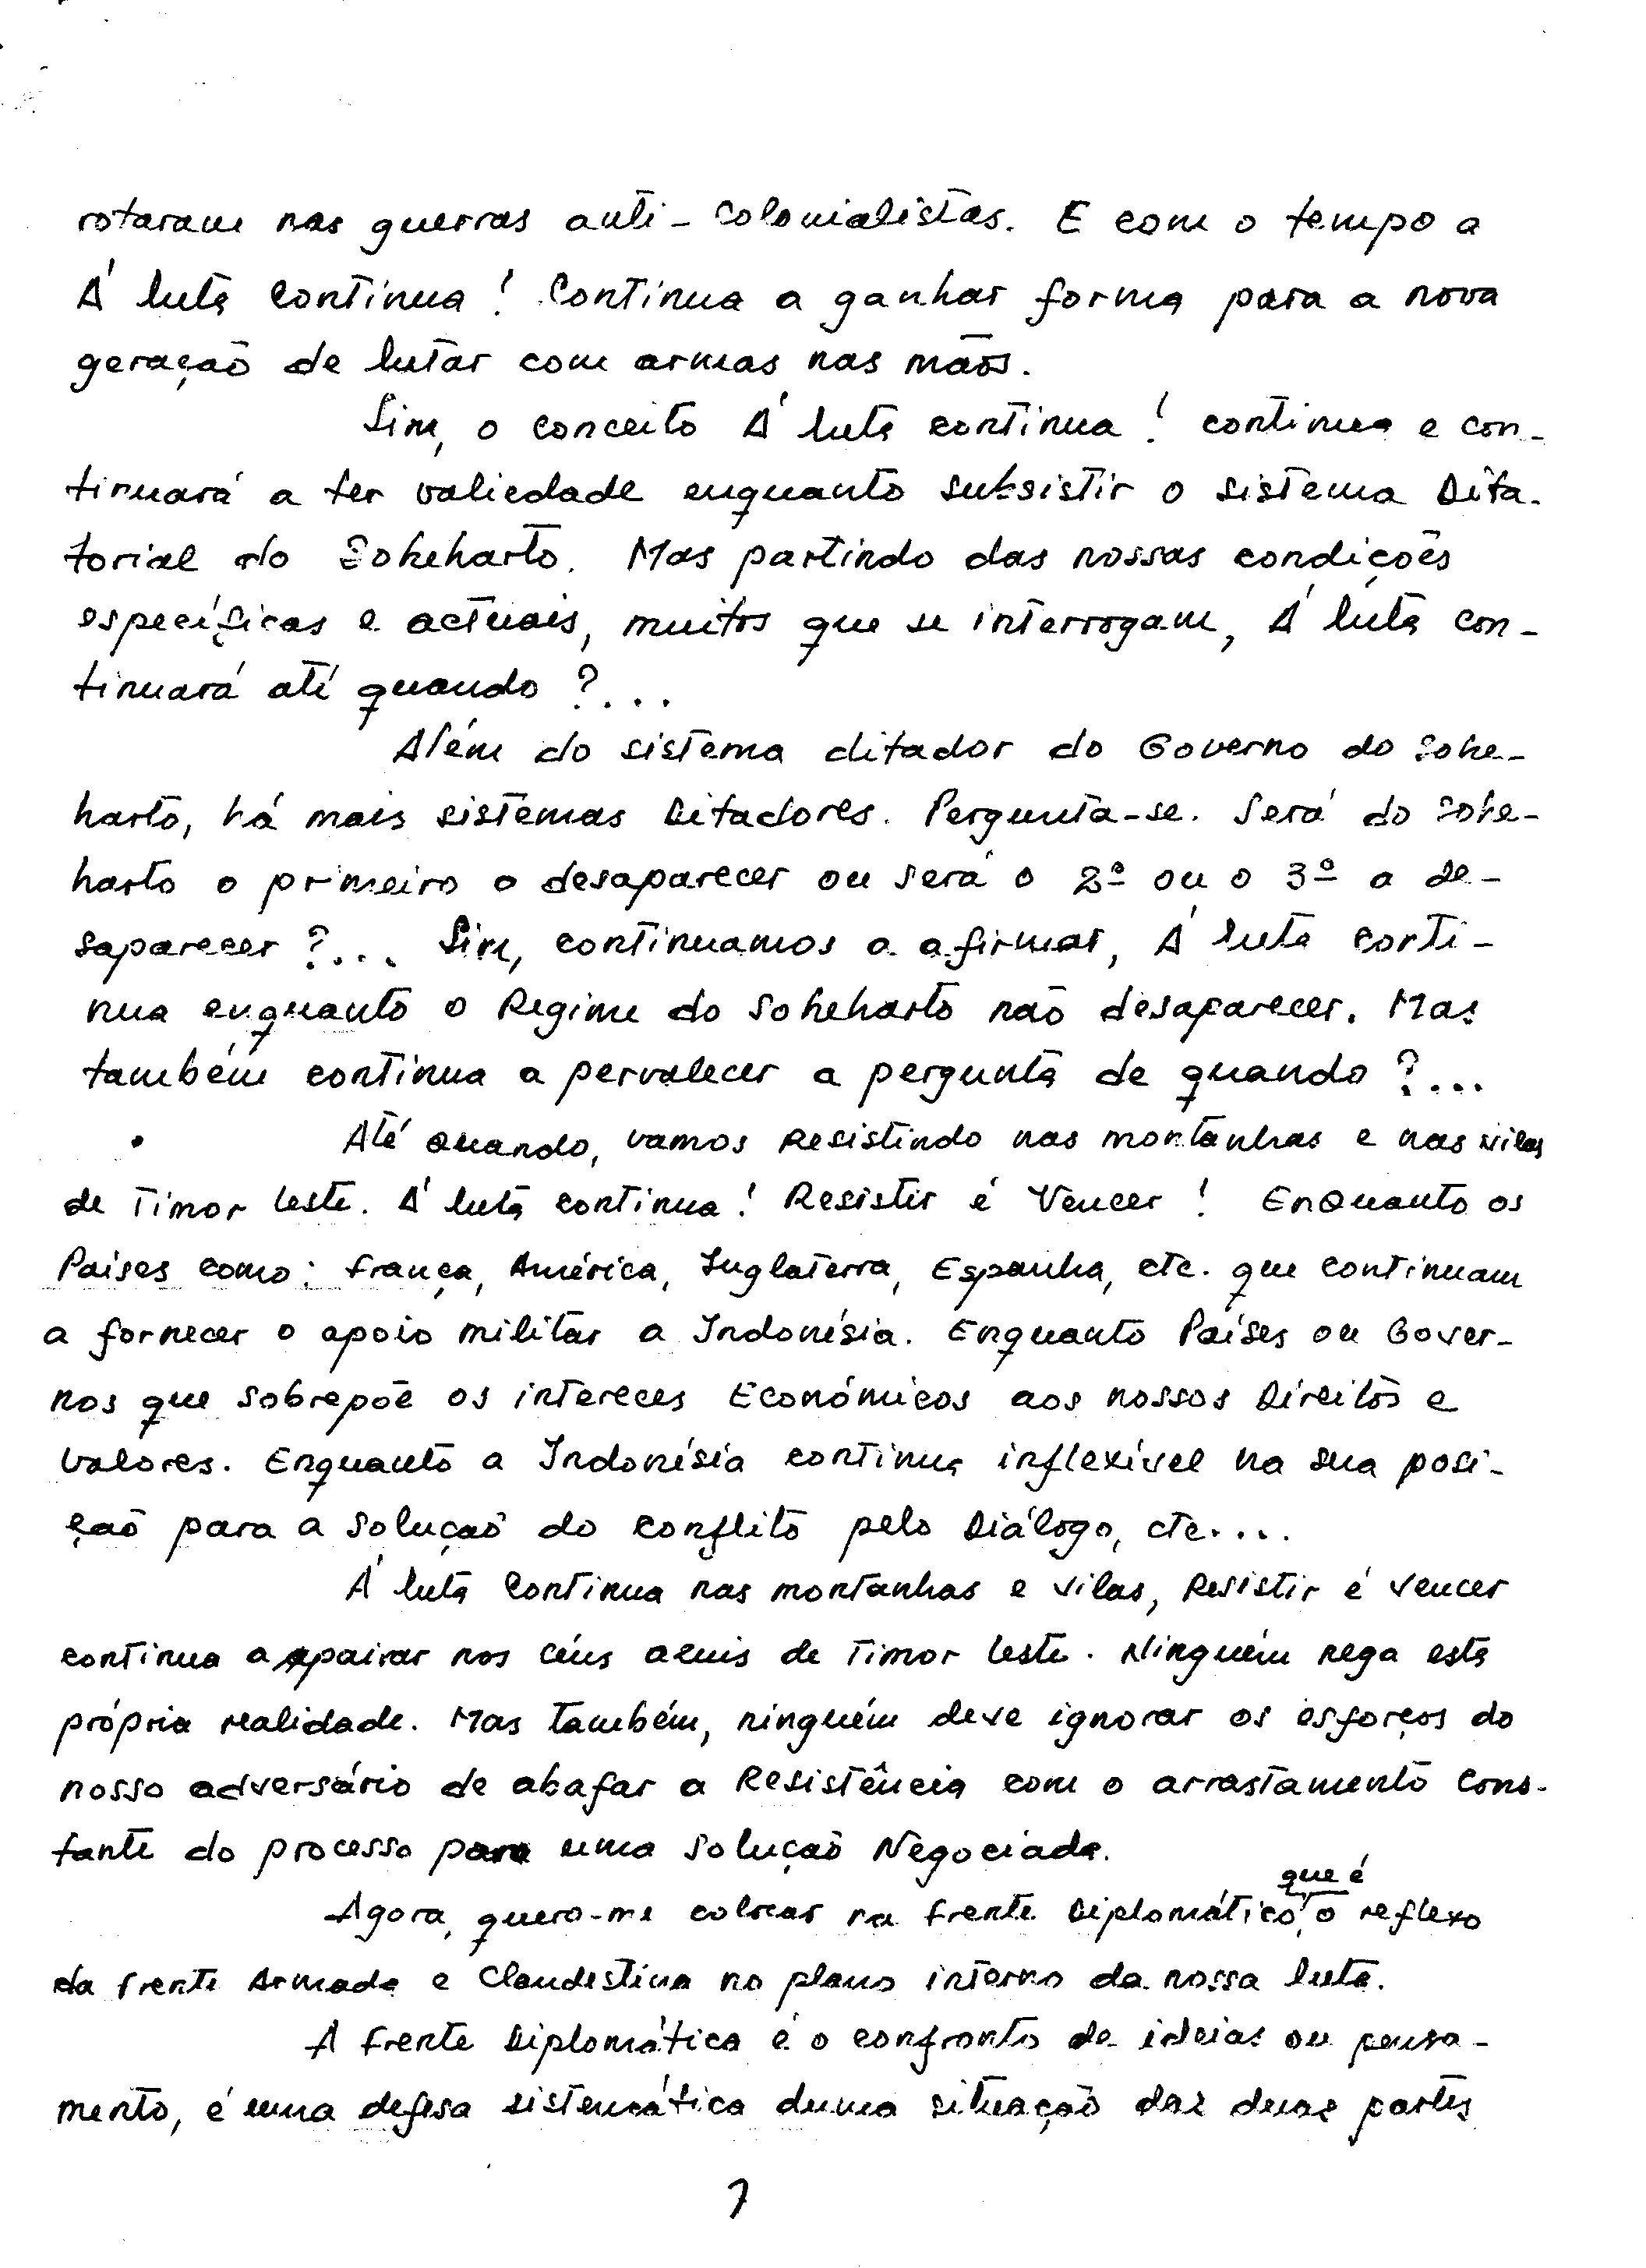 rotaram nas guerras anti-colonialistas. E com o tempo a
Á luta continua! Continua a ganhar forma para a nova
geração de lutar com armas nas mãos.
Sim, o conceito Á luta continua! continua e con-
tinuará a ter valiedade enquanto subsistir o sistema Dita-
torial do Soheharto. Mas partindo das nossas condições
específicas e actuais, muitos que se interrogam, Á luta con-
tinuará até quando?...
Além do sistema ditador do Governo do Sohe-
harto, há mais sistemas Ditadores. Pergunta-se. Será do Sohe-
harto o primeiro a desaparecer ou será o 2º ou o 3º a de-
saparecer?... Sim, continuamos a afirmar, Á luta conti-
nua enquanto o Regime do Soheharto não desaparecer. Mas
também continua a pervalecer a pergunta de quando?...
Até quando, vamos Resistindo nas montanhas e nas vilas
de Timor Leste. Á luta continua! Resistir é Vencer! EnQuanto os
Países como: França, América, Inglaterra, Espanha, etc. que continuam
a fornecer o apoio militar a Indonésia. Enquanto Países ou Gover-
nos que sobrepõe os intereces Económicos aos nossos Direitos e
Valores. Enquanto a Indonésia continua inflexível na sua posi-
ção para a solução do conflito pelo Diálogo, etc....
Á luta continua nas montanhas e vilas, Resistir é vencer
continua a pairar nos céus azuis de Timor Leste. Ninguém nega esta
própria realidade. Mas também, ninguém deve ignorar os esforços do
nosso adversário de abafar a Resistência com o arrastamento cons-
tante do processo para uma solução Negociada.
que é
Agora, quero-me colocar na frente Diplomática, o reflexo
da frente Armada e Clandestina no plano interno da nossa luta.
A frente Diplomática é o confronto de ideias ou pensa-
mento, é uma defesa sistemática duma situação das duas partes
7